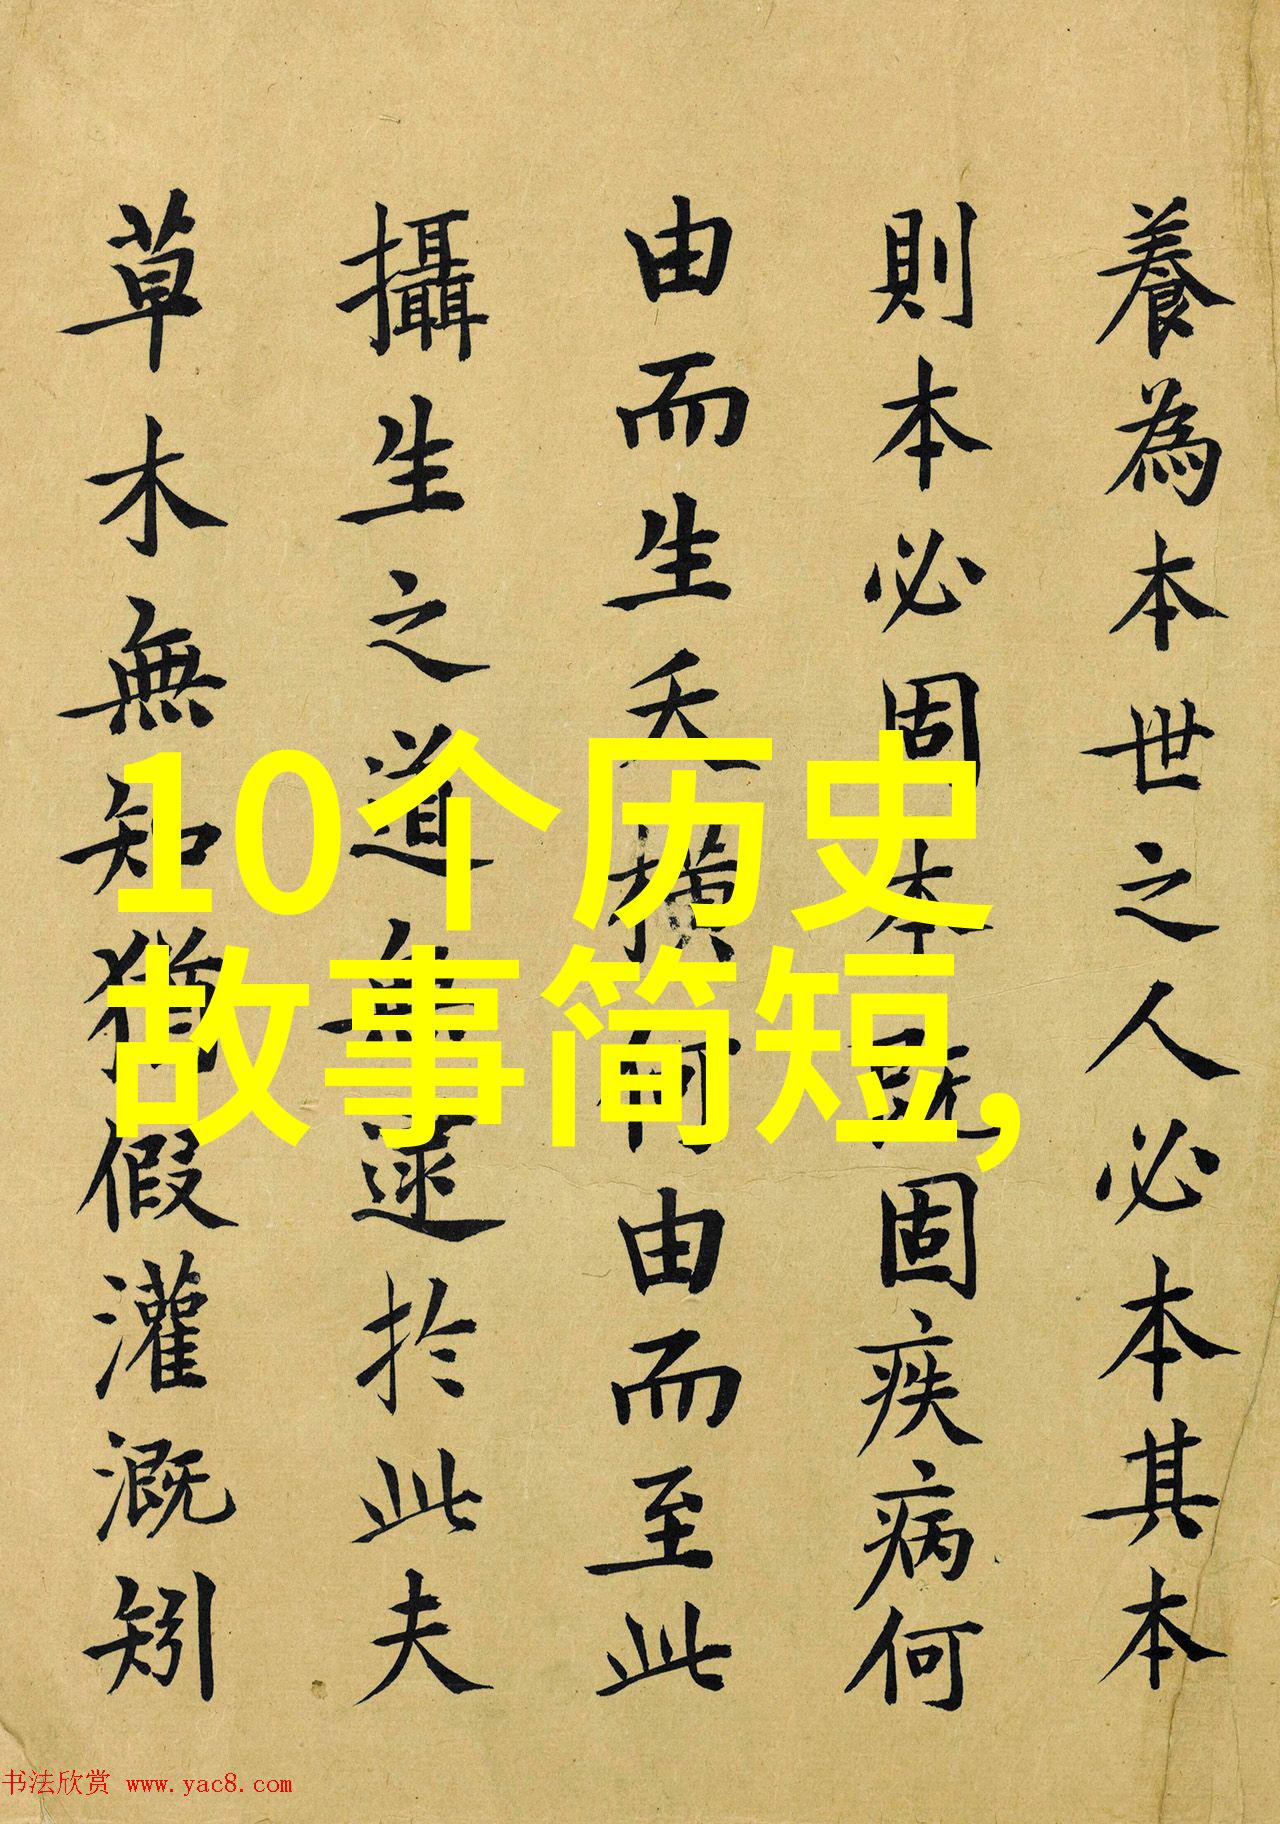 養為本世之人必本其本
則本必固本既固疾病何
由而生夭橫何由而至此
攝生之道無逮於此夫
草木無知猶假灌溉矧
10个历史
故事简短,
书法欣赏 www.yac8.com